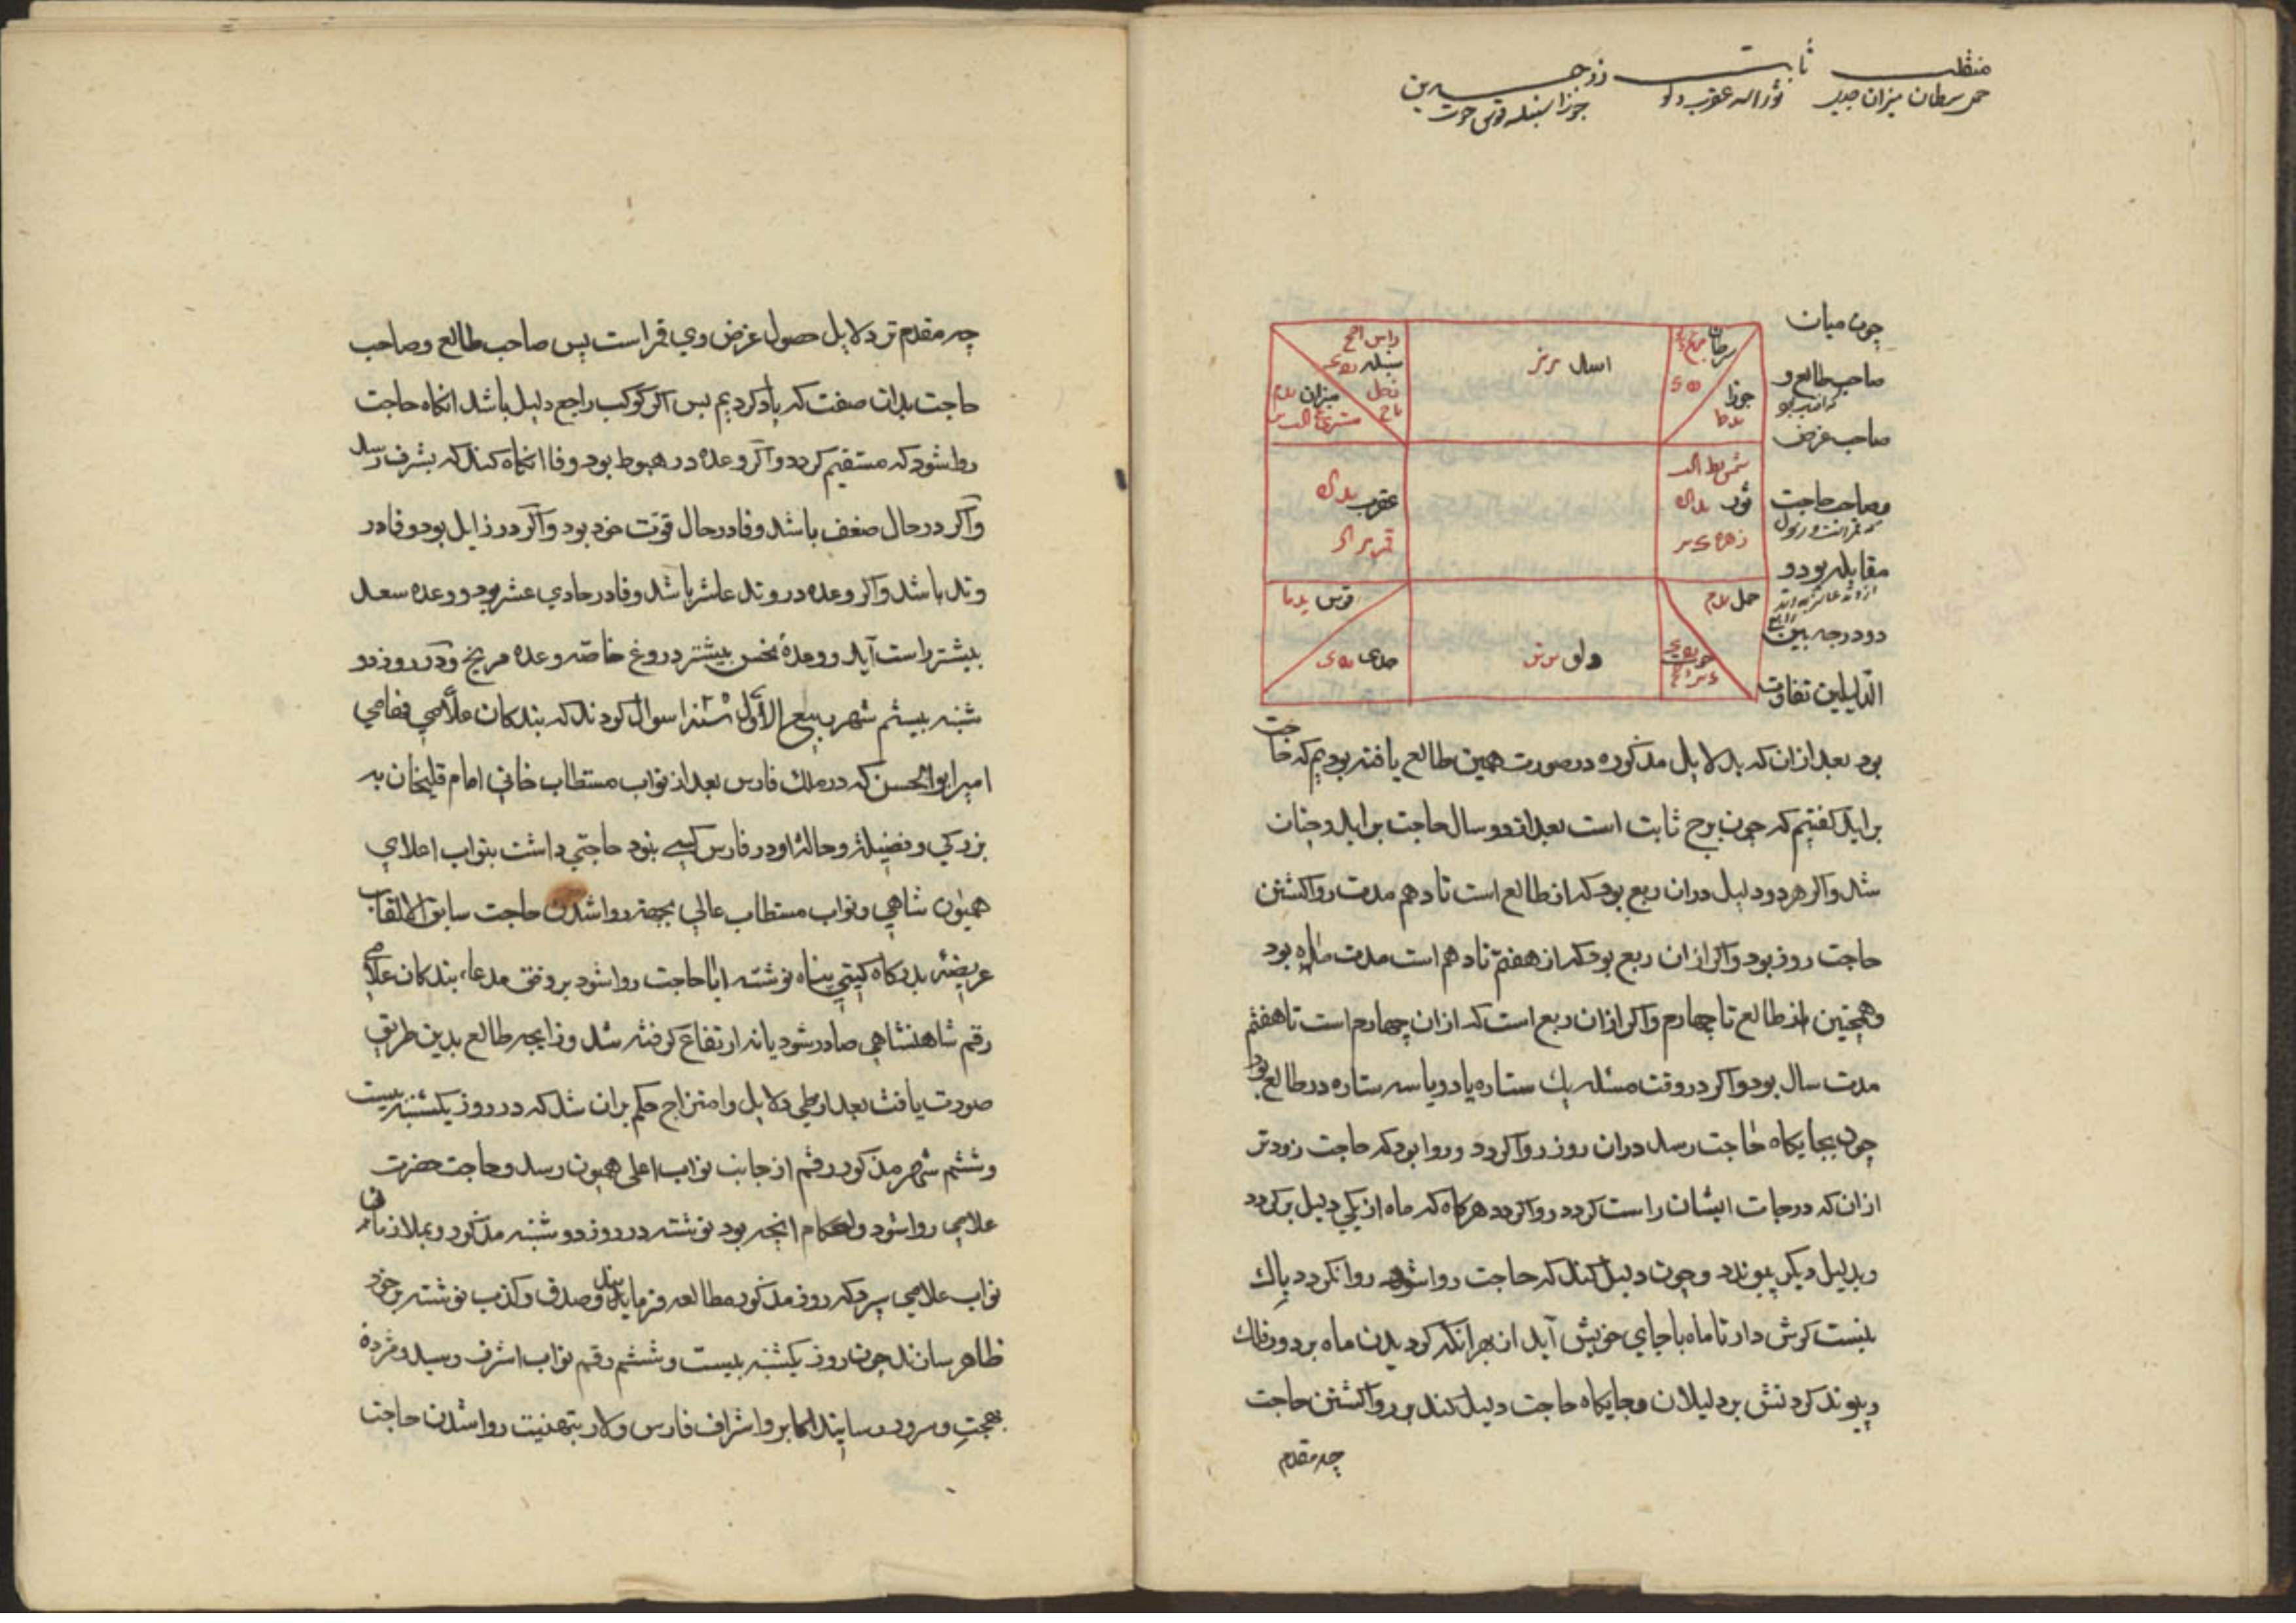 منقلب ثابت ذوجسدین
حمل سرطان میزان جدی ثور اسد عقرب دلو جوزا سنبله قوس حوت
چون میان
صاحب طالع و
صاحب غرض
وصاحب حاجت
مقابله بود و
دو درجه بین
الدلیلین تفاوت
سرطان
جوزا
اسد
سنبله
میزان
شمس
ثور
زهره
عقرب
قمر
حمل
حوت
دلو
قوس
جدی
بود بعد از ان که بدلایل مذکوره در صورت همین طالع یافته بودیم که حاجت
براید کفتیم که چون برج ثابت است بعد از دو سال حاجت براید وچنان
شد واکر هر دو دلیل دران ربع بود که از طالع است تا دهم مدت روا کشتن
حاجت روز بود واکر ازان ربع بود که از هفتم تا دهم است مدت ماه بود
وهمچنین از طالع تا چهارم واکر ازان ربع است که ازان چهارم است تا هفتم
مدت سال بود واکر در وقت مسئله یك ستاره یا دو یا سه ستاره در طالع بود
چون بجایکاه حاجت رسد دران روز روا کردد وروا بود که حاجت زودتر
ازان که درجات ایشان راست کردد روا کردد هرکاه که ماه از یکی دلیل برکردد
وبدلیل دیکر پیوندد وچون دلیل کند که حاجت روا شود روا نکردد پاك
بنست کوش دار تا ماه باجای خویش آید از بهر انکه کردیدن ماه بر دور فلك
وپیوند کردنش بر دلیلان وجایکاه حاجت دلیل کند بر روا کشتن حاجت
چه مقدم
چه مقدم تر دلایل حصول غرض وی قمر است پس صاحب طالع وصاحب
حاجت بدان صفت که یاد کردیم پس اکر کوکب راجع دلیل باشد انکاه حاجت
روا شود که مستقیم کردد واکر وعده در هبوط بود وفا انکاه کند که بشرف رسد
واکر در حال ضعف باشد وفا در حال قوت خود بود واکر در زایل بود وفا در
وتد باشد واکر وعده در وتد عاشر باشد وفا در حادی عشر بود ووعده سعد
بیشتر راست آید ووعدهٔ نحس بیشتر دروغ خاصه وعده مریخ ودر روز دو
شنبه بیستم شهر ربیع الأول سنه سوال کردند که بندکان علامی فهامی
امیر ابوالحسن که در ملك فارس بعد از نواب مستطاب خانی امام قلیخان به
بزرکی وفضیلة وحالة او در فارس کسی بنود حاجتی داشت بنواب اعلای
همیون شاهی ونواب مستطاب عالی بجهة روا شدن حاجت سابق الالقاب
عریضه بدرکاه کیتی پناه نوشته ایا حاجت روا شود بر وفق مدعاء بندکان علامی
رقم شاهنشاهی صادر شود یا نه ارتفاع کرفته شد وزایجه طالع بدین طریق
صورت یافت بعد از طی دلایل وامتزاج حکم بران شد که در روز یکشنبه بیست
وششم شهر مذکور رقم از جانب نواب اعلی همیون رسد وحاجت حضرت
علامی روا شود واحکام انچه بود نوشته در روز دو شنبه مذکور وبملازمان
نواب علامی سپرد که روز مذکور مطالعه فرمایند وصدق وکذب نوشته بر خود
ظاهر سازند چون روز یکشنبه بیست وششم رقم نواب اشرف رسید ومژدهٔ
بهجت وسرور رسانید اکابر واشراف فارس ولار بتهنیت روا شدن حاجت